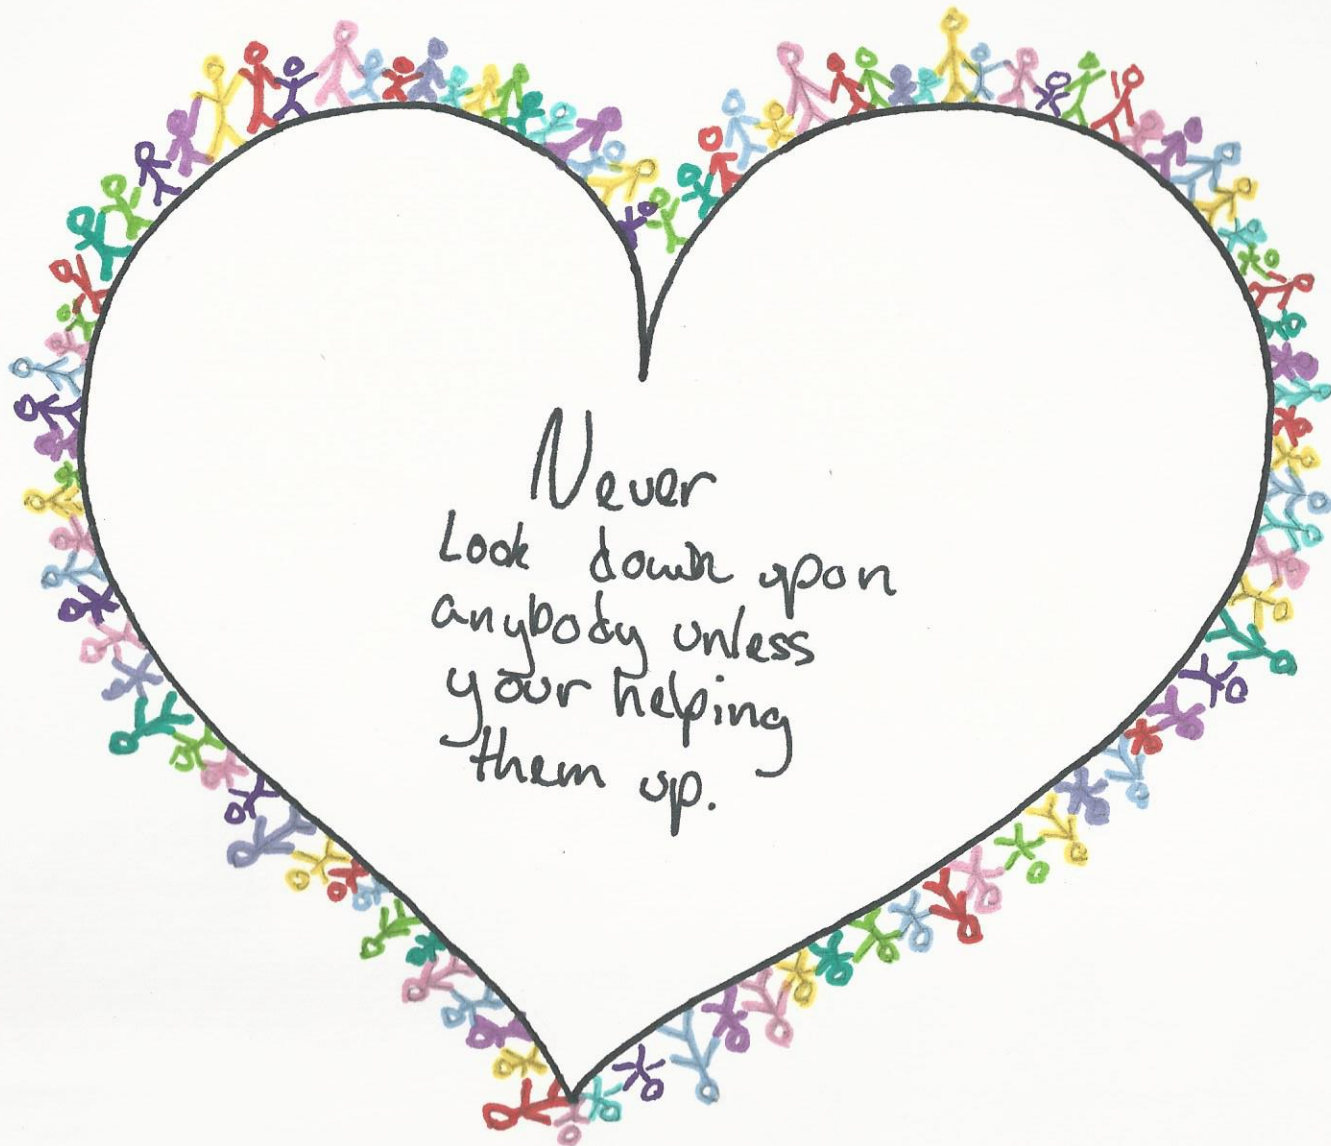 Never
Look down upon
anybody unless
your helping
them up.